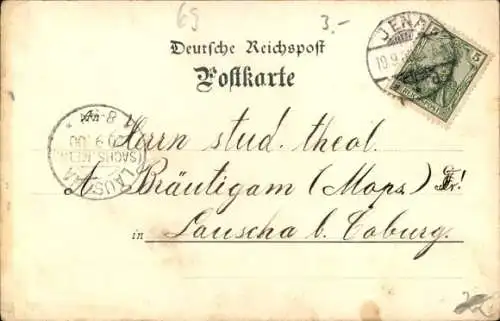 69
3.-
Deutsche Reichspost
Postkarte
JENA
19.9.
5
8-9V
20 9 00
(SACHS. MEIN.)
LAUSCHA
Herrn stud. theol.
A Bräutigam (Mops)
in Lauscha b. Coburg.